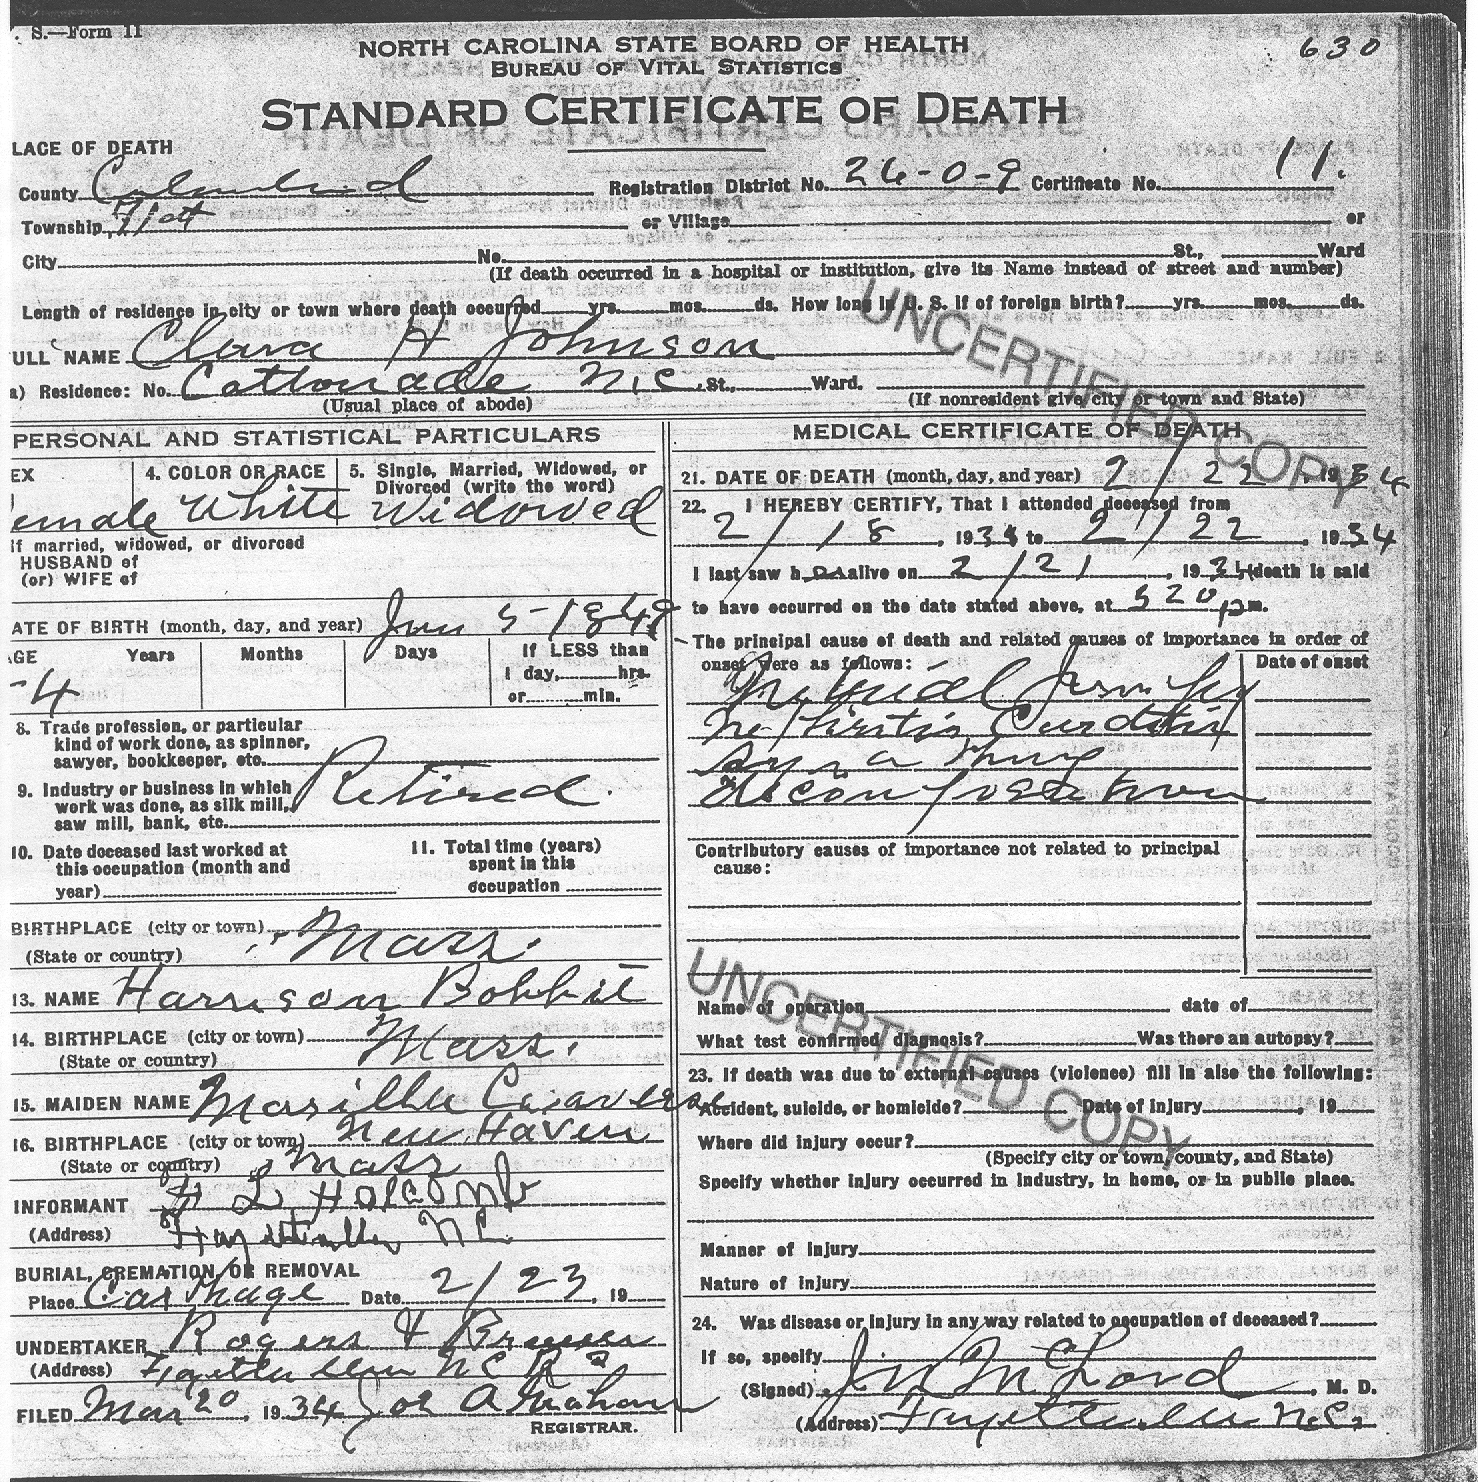 . S.—Form 11
630
NORTH CAROLINA STATE BOARD OF HEALTH
BUREAU OF VITAL STATISTICS
STANDARD CERTIFICATE OF DEATH
LACE OF DEATH
County Registration District No. 26-0-9 Certificate No. 11.
Township or Village or
City No. St., Ward
(If death occurred in a hospital or institution, give its Name instead of street and number)
Length of residence in city or town where death occurred yrs. mos. ds. How long in U. S. if of foreign birth? yrs. mos. ds.
ULL NAME Clara H Johnson
a) Residence: No. Cottonade N.C. St., Ward.
(Usual place of abode) (If nonresident give city or town and State)
UNCERTIFIED COPY
PERSONAL AND STATISTICAL PARTICULARS
EX 4. COLOR OR RACE 5. Single, Married, Widowed, or
Divorced (write the word)
emale White Widowed
If married, widowed, or divorced
HUSBAND of
(or) WIFE of
ATE OF BIRTH (month, day, and year) 5-1849
AGE Years Months Days If LESS than
1 day, hrs.
or min.
-4
8. Trade profession, or particular
kind of work done, as spinner,
sawyer, bookkeeper, etc.
9. Industry or business in which
work was done, as silk mill,
saw mill, bank, etc.
Retired.
10. Date deceased last worked at
this occupation (month and
year)
11. Total time (years)
spent in this
occupation
BIRTHPLACE (city or town)
(State or country) Mass.
13. NAME Harrison Bobbit
14. BIRTHPLACE (city or town)
(State or country) Mass.
15. MAIDEN NAME
16. BIRTHPLACE (city or town) New Haven
(State or country) Mass
INFORMANT L Holcomb
(Address) Fayetteville N C.
BURIAL, CREMATION, OR REMOVAL
Place Carthage Date 2/23, 19
UNDERTAKER Rogers &
(Address) Fayetteville N C
FILED Mar 20, 1934 A Graham
REGISTRAR.
MEDICAL CERTIFICATE OF DEATH
21. DATE OF DEATH (month, day, and year) 2/22 1934
22. I HEREBY CERTIFY, That I attended deceased from
2/18, 1934 to 2/22, 1934
I last saw h alive on 2/21, 1934 death is said
to have occurred on the date stated above, at 520 pm.
The principal cause of death and related causes of importance in order of
onset were as follows: Date of onset
Contributory causes of importance not related to principal
cause:
UNCERTIFIED COPY
Name of operation date of
What test confirmed diagnosis? Was there an autopsy?
23. If death was due to external causes (violence) fill in also the following:
Accident, suicide, or homicide? Date of injury, 19
Where did injury occur?
(Specify city or town, county, and State)
Specify whether injury occurred in industry, in home, or in public place.
Manner of injury
Nature of injury
24. Was disease or injury in any way related to occupation of deceased?
If so, specify
(Signed) McLord, M. D.
(Address) Fayetteville N.C.